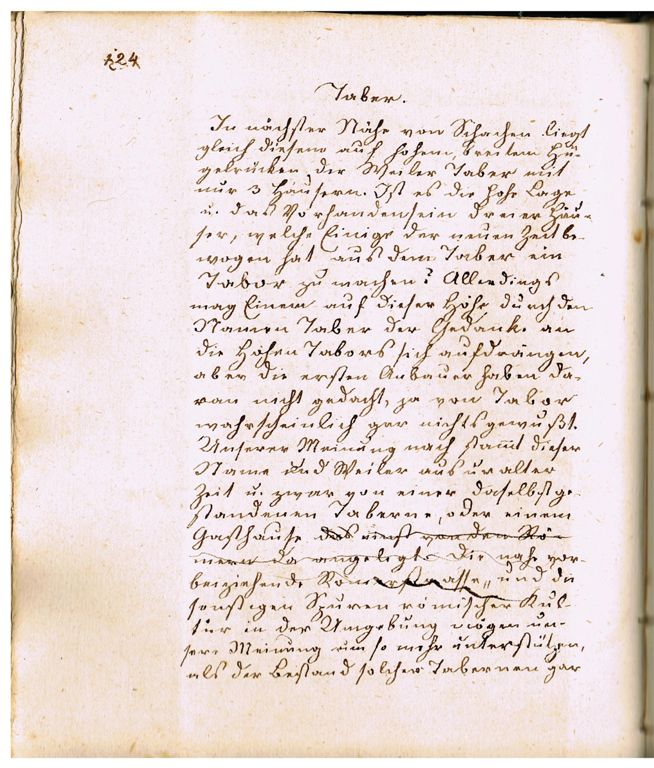 124
Taber.
In nächster Nähe von Schachen liegt
gleich diesem auf hohem, breitem Hü-
gelrücken der Weiler Taber mit
nur 3 Häusern. Ist es die hohe Lage
u. das Vorhandensein dreier Häu-
ser, welche Einige der neuen Zeit be-
wogen hat aus dem Taber ein
Tabor zu machen? Allerdings
mag Einem auf dieser Höhe durch den
Namen Taber der Gedanke an
die Höhen Tabors sich aufdrängen,
aber die ersten Anbauer haben da-
ran nicht gedacht, ja von Tabor
wahrscheinlich gar nichts gewußt.
Unserer Meinung nach stammt dieser
Name und Weiler aus uralter
Zeit u. zwar von einer daselbst ge-
standenen Taberne, oder einem
Gasthause das einst von den Rö-
mern da angelegt. Die nahe vor-
beiziehende Römerstrasse, und die
sonstigen Spuren römischer Kul-
tur in der Umgebung mögen un-
sere Meinung um so mehr unterstützen,
als der Bestand solcher Tabernen gar